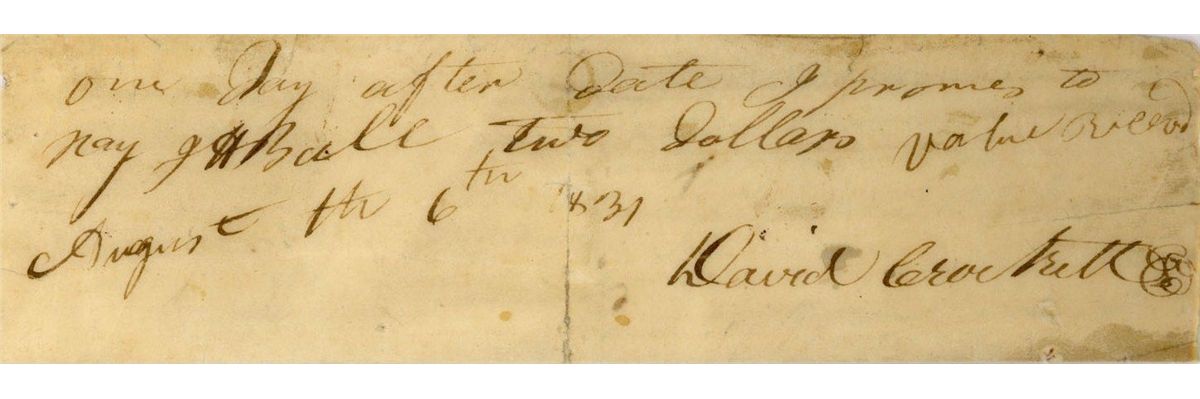 one Day after Date I promis to
pay J H Ball two Dollars value Recevd
August th 6th 1831
David Crockett